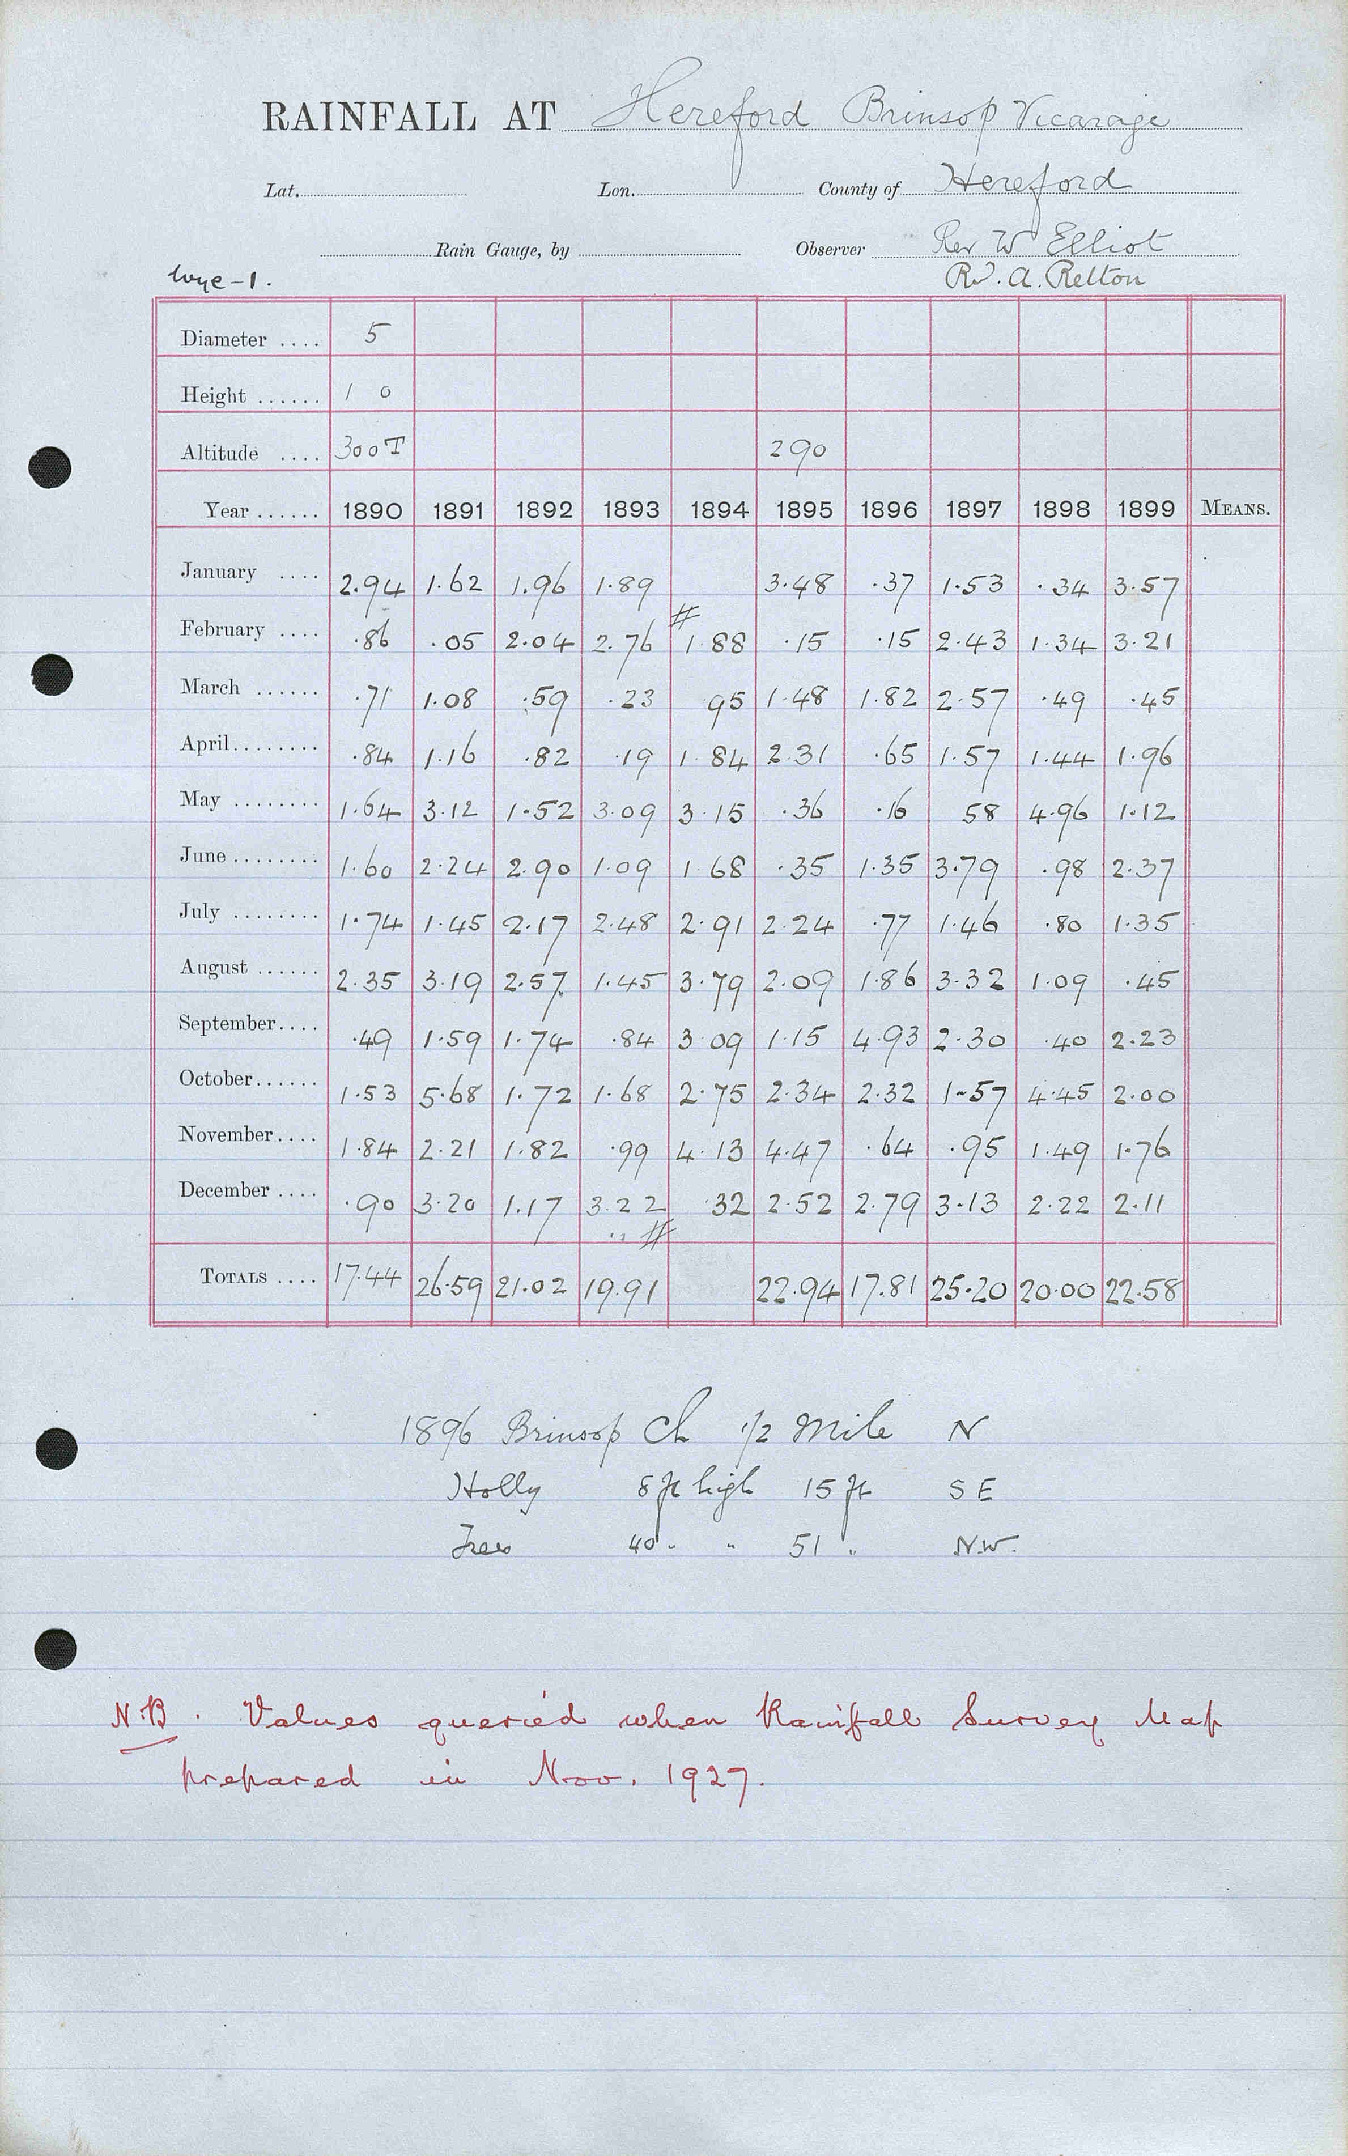 RAINFALL AT Hereford Brinsop Vicarage
Lat. Lon. County of Hereford
Rain Gauge, by Observer Rev W Elliot
Wye-1. Rd. A. Relton
Diameter .... 5
Height ...... 1 0
Altitude .... 300T 290
Year ...... 1890 1891 1892 1893 1894 1895 1896 1897 1898 1899 MEANS.
January .... 2.94 1.62 1.96 1.89 3.48 .37 1.53 .34 3.57
#
February .... .86 .05 2.04 2.76 1.88 .15 .15 2.43 1.34 3.21
March ...... .71 1.08 .59 .23 95 1.48 1.82 2.57 .49 .45
April........ .84 1.16 .82 .19 1.84 2.31 .65 1.57 1.44 1.96
May ........ 1.64 3.12 1.52 3.09 3.15 .36 .16 58 4.96 1.12
June........ 1.60 2.24 2.90 1.09 1 68 .35 1.35 3.79 .98 2.37
July ........ 1.74 1.45 2.17 2.48 2.91 2.24 .77 1.46 .80 1.35
August ...... 2.35 3.19 2.57 1.45 3.79 2.09 1.86 3.32 1.09 .45
September.... .49 1.59 1.74 .84 3 09 1.15 4.93 2.30 .40 2.23
October...... 1.53 5.68 1.72 1.68 2.75 2.34 2.32 1.57 4.45 2.00
November.... 1.84 2.21 1.82 .99 4.13 4.47 .64 .95 1.49 1.76
December .... .90 3.20 1.17 3.22 .32 2.52 2.79 3.13 2.22 2.11
#
TOTALS .... 17.44 26.59 21.02 19.91 22.94 17.81 25.20 20.00 22.58
1896 Brinsop Ch 1/2 Mile N
Holly 8 ft high 15 ft S E
Trees 40 " " 51 " N.W.
N.B. Values queried when Rainfall Survey Map
prepared in Nov. 1927.